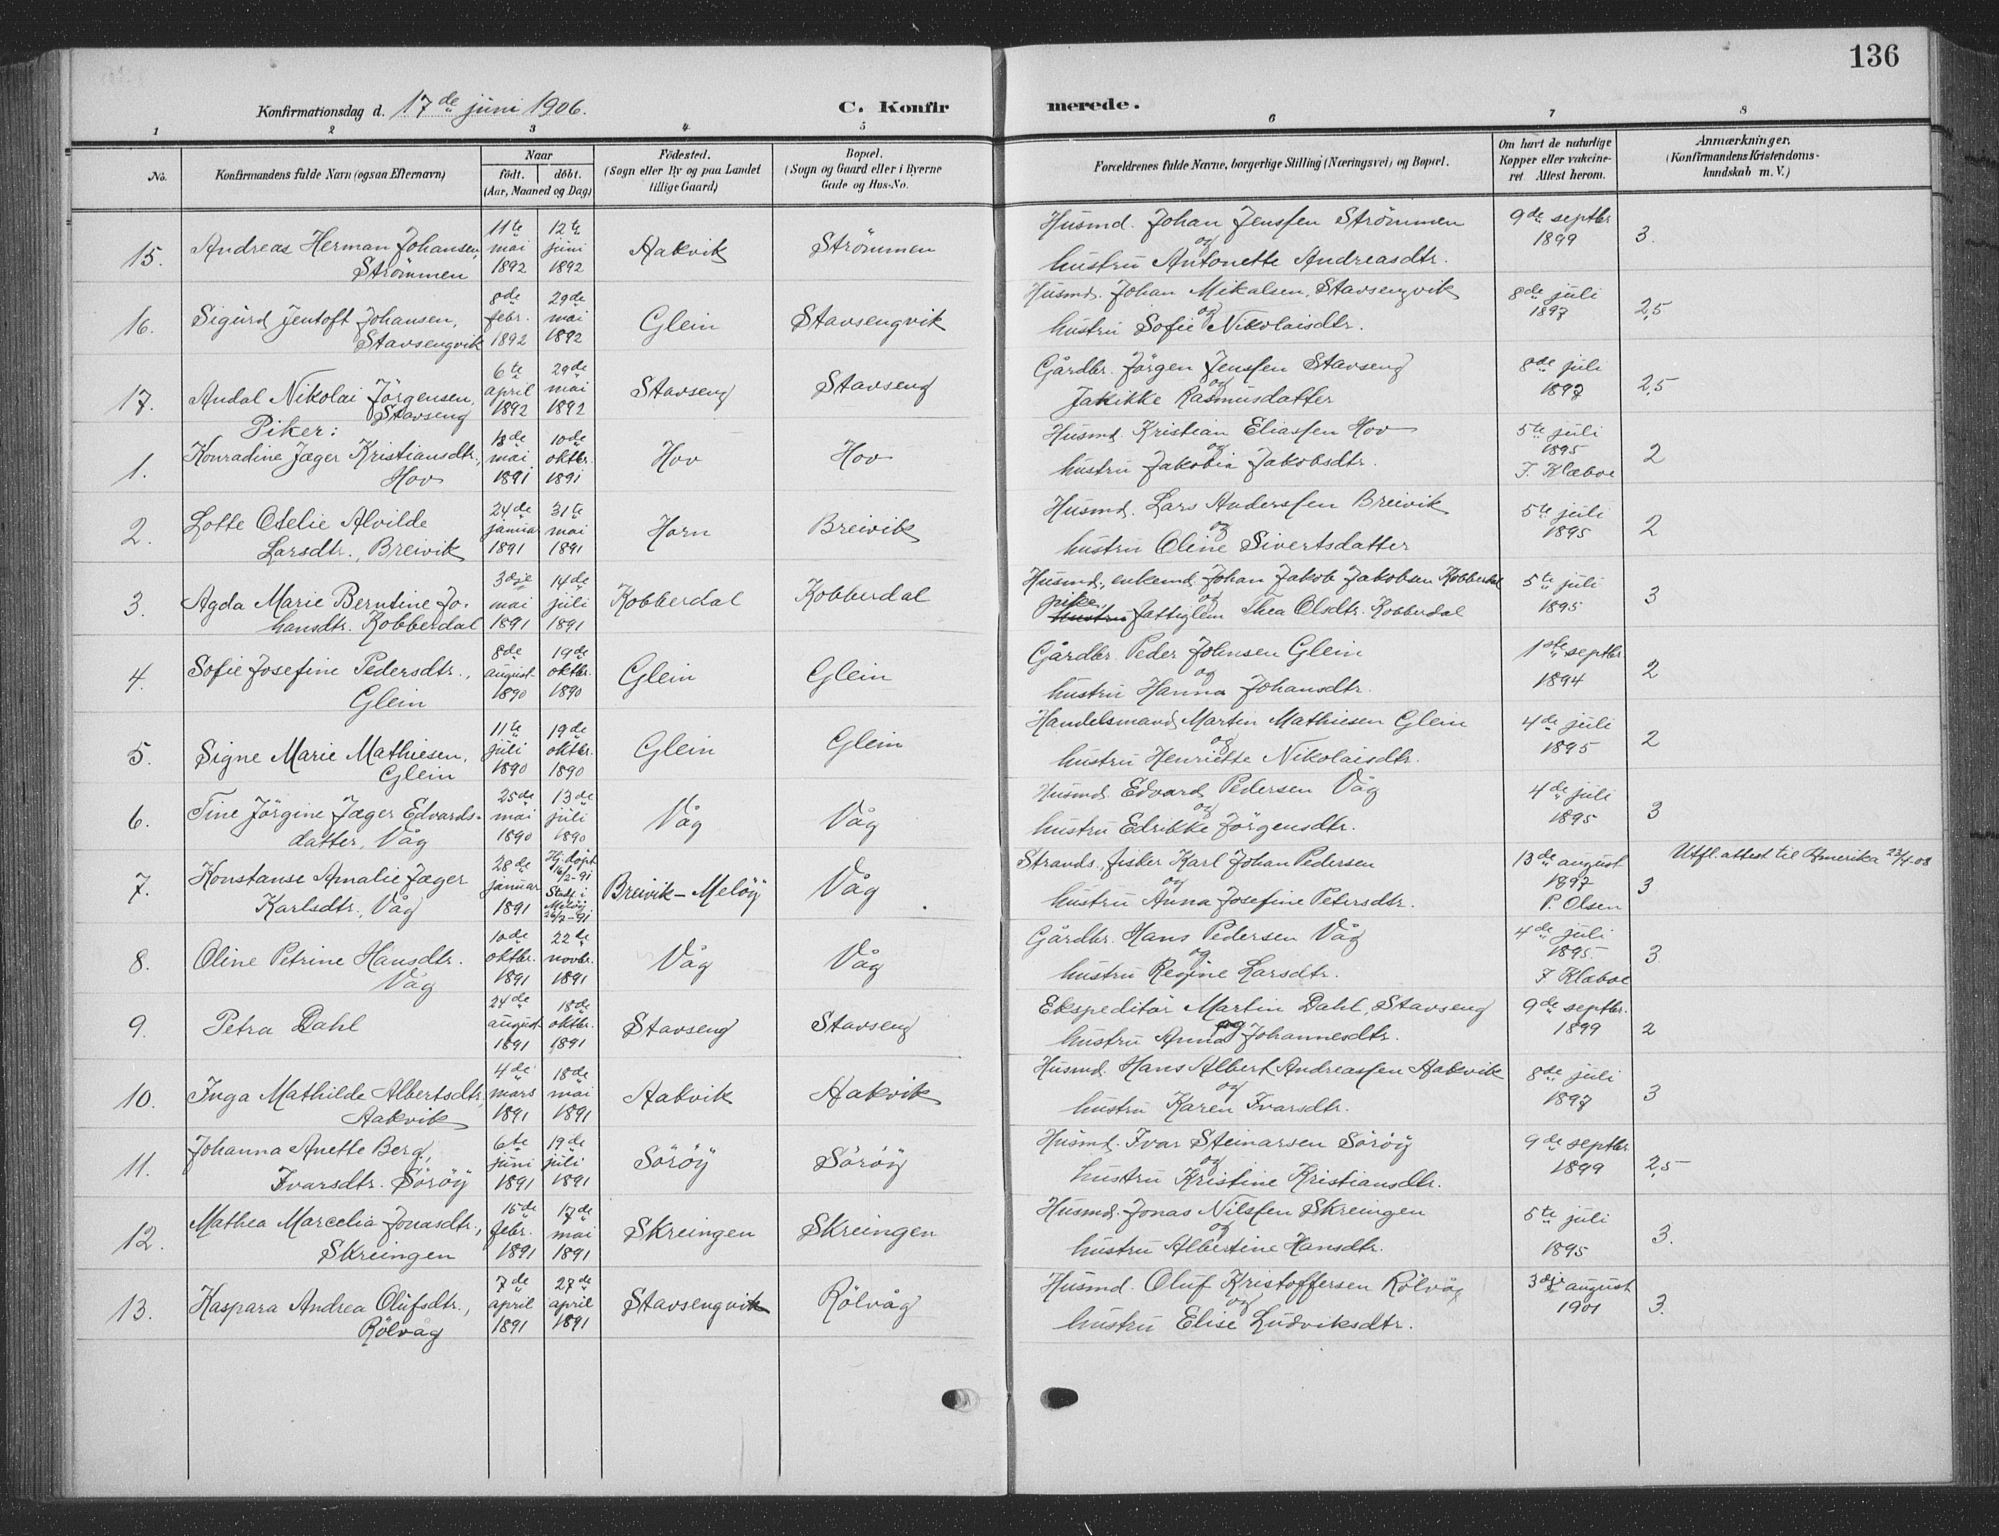 136
Konfirmationsdag d. 17de juni 1906.
C. Konfirmerede.
1 2 3 4 5 6 7 8
No.
Konfirmandens fulde Navn (ogsaa Efternavn)
Naar
født. døbt.
(Aar, Maaned og Dag)
Födested.
(Sogn eller By og paa Landet
tillige Gaard)
Bopæl.
(Sogn og Gaard eller i Byerne
Gade og Hus-No.
Forældrenes fulde Navne, borgerlige Stilling (Næringsvei) og Bopæl.
Om havt de naturlige
Kopper eller vaccine-
ret Attest herom.
Anmærkninger,
(Konfirmandens Kristendoms-
kundskab m. V.)
15. Andreas Herman Johansen, Strömmen
11te mai 1892
12te juni 1892
Aakvik
Strömmen
Husmd. Johan Jenssen Strömmen
og
hustru Antonette Andreasdtr.
9de septbr 1899
3.
16. Sigurd Jentoft Johansen, Stavsengvik
8de febr. 1892
29de mai 1892
Glein
Stavsengvik
Husmd. Johan Mikalsen, Stavsengvik
og
hustru Sofie Nikolaisdtr.
8de juli 1897
2,5
17. Andal Nikolai Jörgensen, Stavseng
6te april 1892
29de mai 1892
Stavseng
Stavseng
Gårdbr. Jörgen Jenssen Stavseng
og
Jakikke Rasmusdatter
8de juli 1897
2,5
Piker:
1. Konradine Jæger Kristiansdtr., Hov
13de mai 1891
10de oktbr. 1891
Hov
Hov
Husmd. Kristian Eliassen Hov
og
hustru Jakobia Jakobsdtr.
5te juli 1895
J. Klæboe
2
2. Lotte Otelie Alvilde
Larsdtr., Breivik
24de januar 1891
31te mai 1891
Horn
Breivik
Husmd. Lars Anderssen Breivik
og
hustru Oline Sivertsdatter
5te juli 1895
2
3. Agda Marie Berntine Jo-
hansdtr. Kobberdal
3dje mai 1891
14de juli 1891
Kobberdal
Kobberdal
Husmd., enkemd. Johan Jakob Jakobsen Kobberdal
og
pike, hustru fattiglem Thea Olsdtr. Kobberdal
5te juli 1895
3
4. Sofie Josefine Pedersdtr.,
Glein
8de august 1890
19de oktbr. 1890
Glein
Glein
Gårdbr. Peder Johnsen Glein
og
hustru Hanna Johansdtr.
1ste septbr 1894
2
5. Signe Marie Mathiesen,
Glein
11te juli 1890
19de oktbr. 1890
Glein
Glein
Handelsmand Martin Mathiesen Glein
og
hustru Henriette Nikolaisdtr.
4de juli 1895
2
6. Tine Jörgine Jæger Edvards-
datter, Våg
25de mai 1890
13de juli 1890
Våg
Våg
Husmd. Edvard Pedersen Våg
og
hustru Edrikke Jörgensdtr.
4de juli 1895
3
7. Konstanse Amalie Jæger
Karlsdtr., Våg
28de januar 1891
Hj. döpt 16/2-91 Stadf. i Melöy 26/7-91
Breivik - Melöy
Våg
Strands., fisker Karl Johan Pedersen
og
hustru Anna Josefine Petersdtr.
13de august 1897
P. Olsen
3
Utfl. attest til Amerika 23/4-08
8. Oline Petrine Hansdtr.
Våg
10de oktbr. 1891
22de novbr. 1891
Våg
Våg
Gårdbr. Hans Pedersen Våg
og
hustru Regine Larsdtr.
4de juli 1895.
J Klæboe
3
9. Petra Dahl
24de august 1891
18de oktbr. 1891
Stavseng
Stavseng
Ekspeditör Martin Dahl, Stavseng
og
hustru Anna Johannesdtr.
9de septbr. 1899
2
10. Inga Mathilde Albertsdtr,
Aakvik
4de mars 1891
18de mai 1891
Aakvik
Aakvik
Husmd. Hans Albert Andreassen Aakvik
og
hustru Karen Ivarsdtr.
8de juli 1897
3
11. Johanna Anette Berg,
Ivarsdtr. Söröy
6te juni 1891
19de juli 1891
Söröy
Söröy
Husmd. Ivar Steinarsen Söröy
og
hustru Kristine Kristiansdtr.
9de septbr 1899
2,5
12. Mathea Marcelia Jonasdtr.,
Skreingen
15de febr. 1891
17de mai 1891
Skreingen
Skreingen
Husmd. Jonas Nilssen Skreingen
og
hustru Albertine Hansdtr.
5te juli 1895
3.
13. Kaspara Andrea Olufsdtr.,
Rölvåg
7de april 1891
27de april 1891
Stavsengvik
Rölvåg
Husmd. Oluf Kristoffersen Rölvåg
og
hustru Elise Ludviksdtr.
3dje august 1901
3.